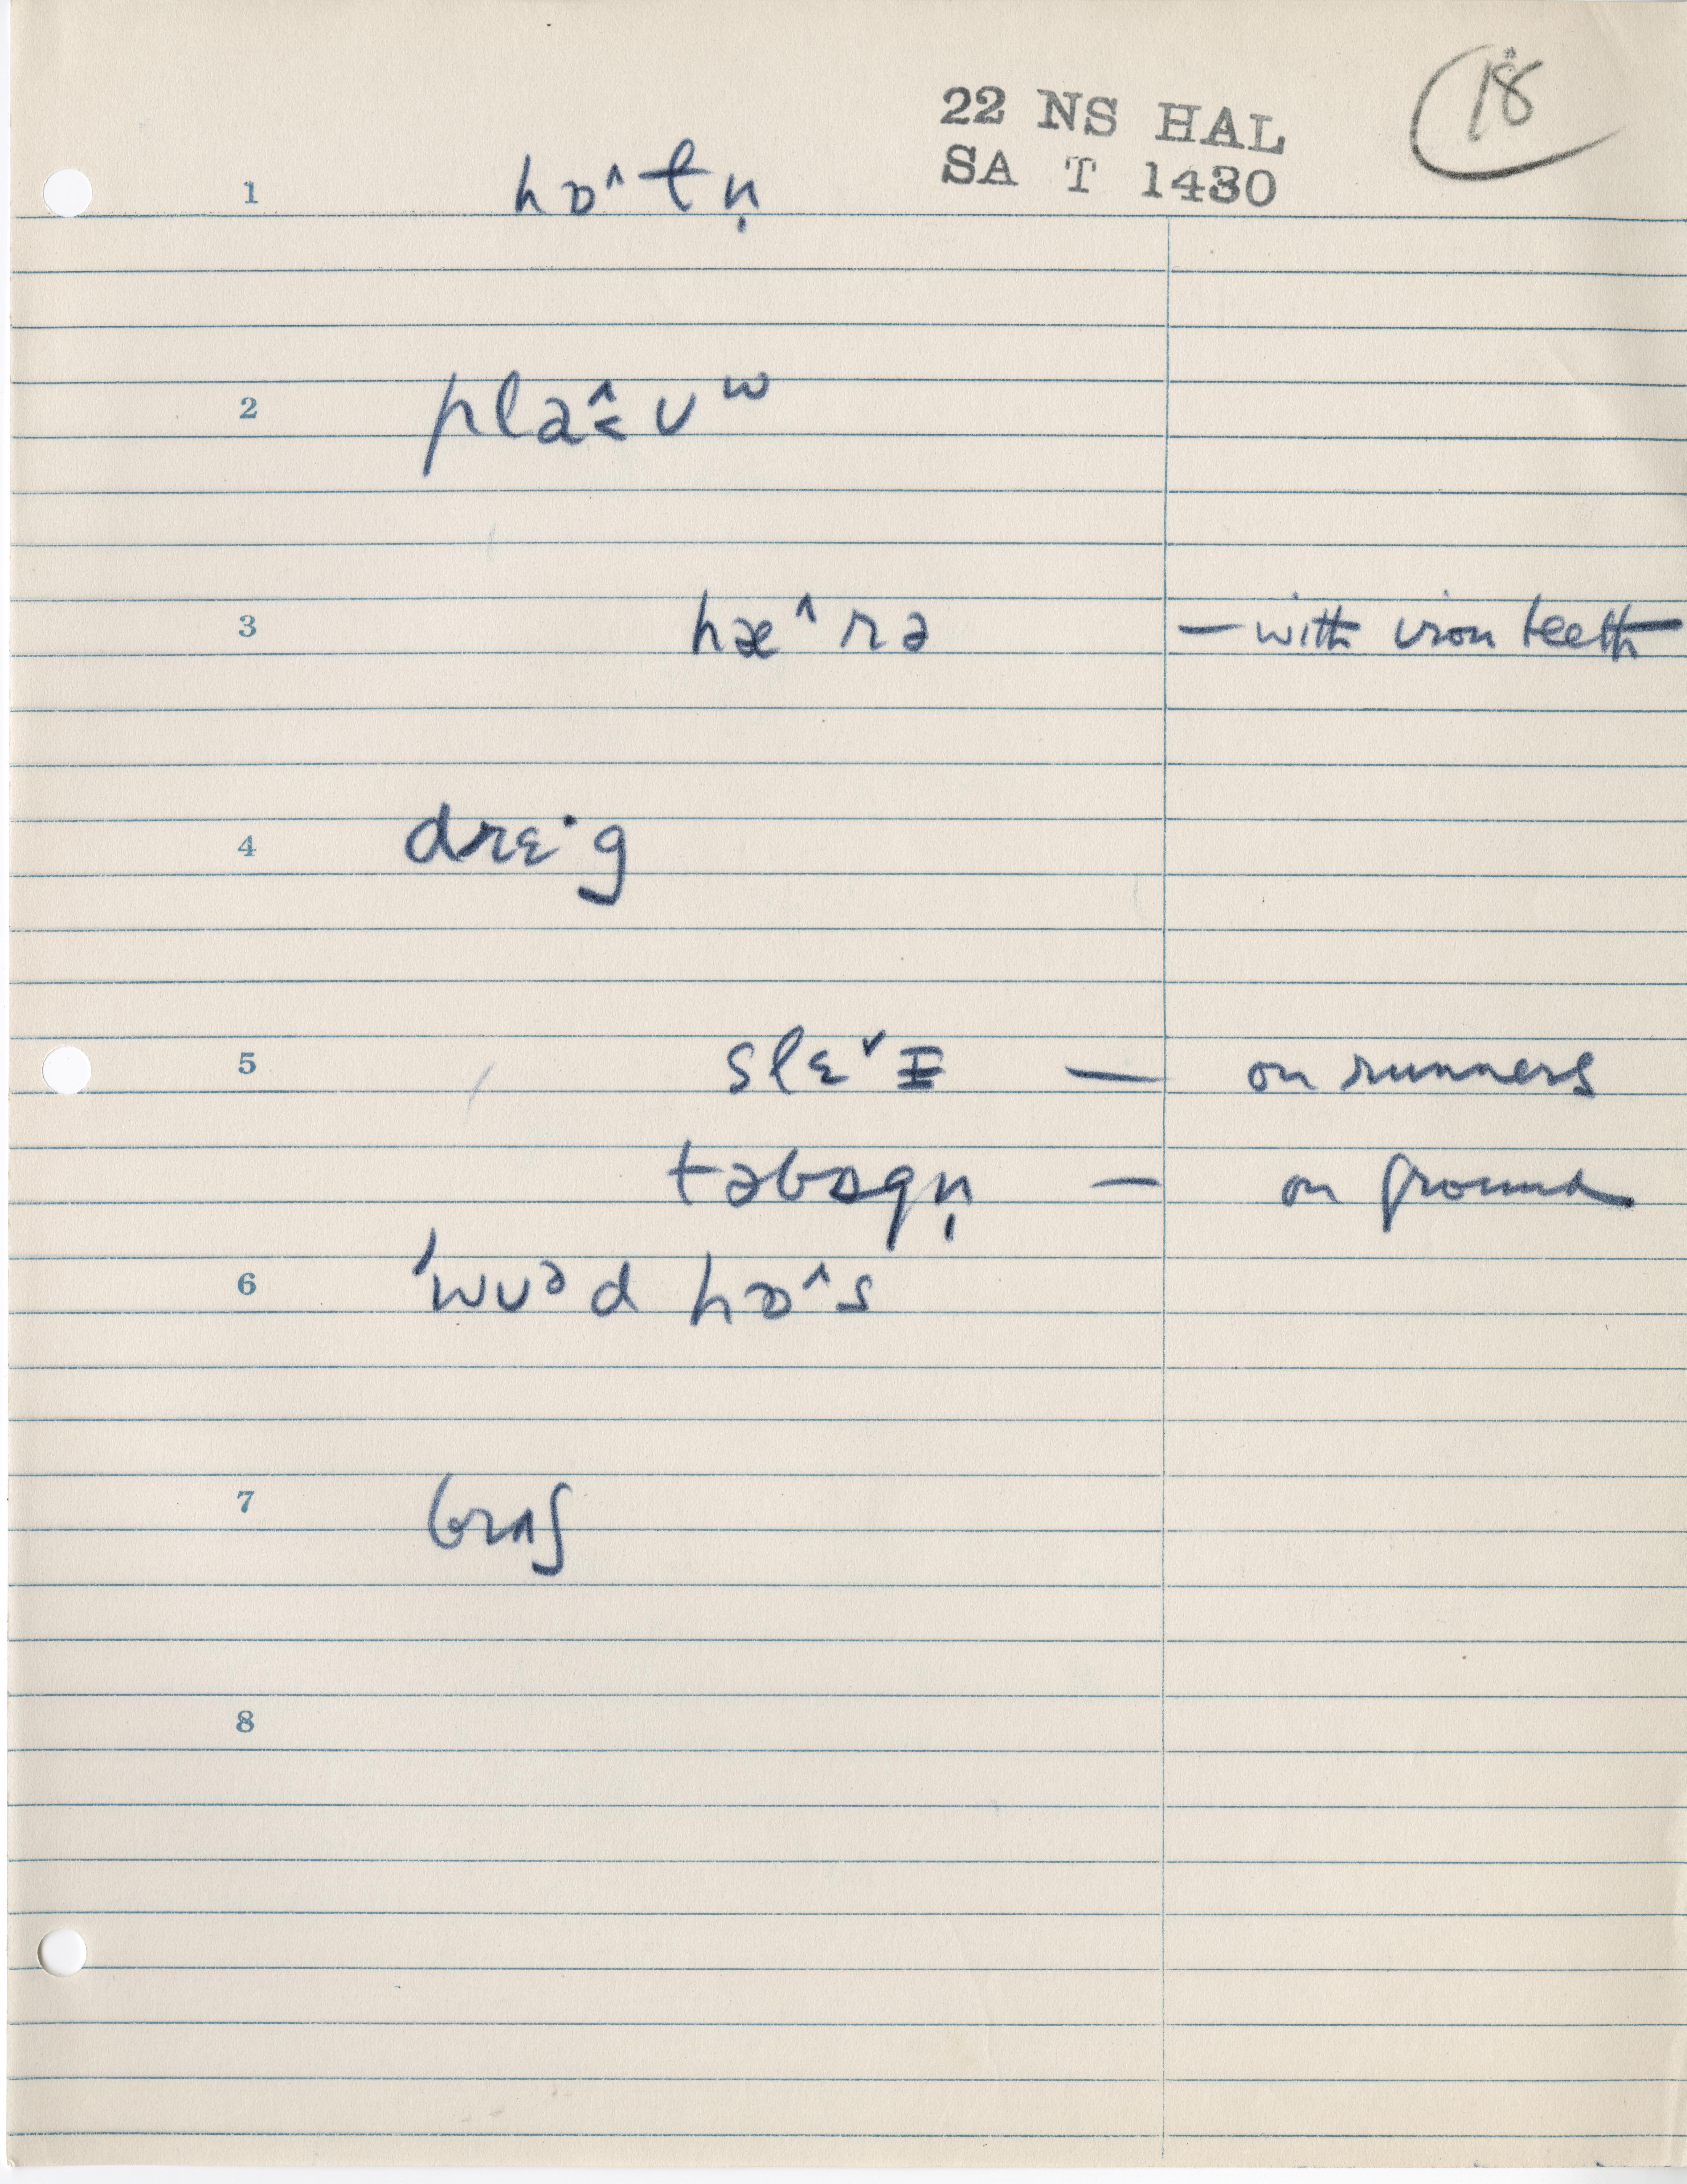 22 NS HAL
SA T 1430
18
1 hɒ^tn̩
2 plə^˂ʊʷ
3 hæ^rə — with iron teeth
4 drɛˑg
5 slɛˇɪ — on runners
təbɒgn̩ — on ground
6 ˈwʊᵊd hɒ^s
7 brʌʃ
8